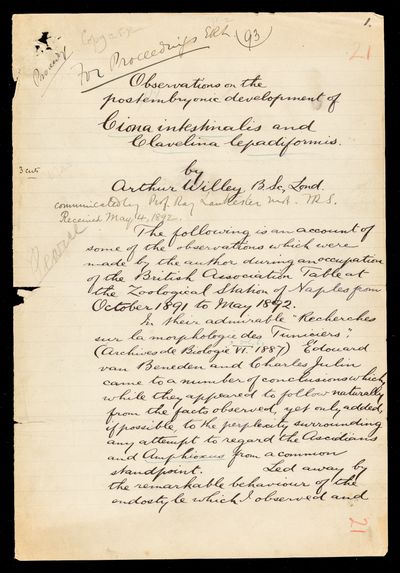 1.
21
Proceedgs
For Proceedings ERL (93)
Observations on the
postembryonic development of
Ciona intestinalis and
Clavelina lepadiformis.
3 cuts
by
Arthur Willey B.Sc. Lond.
communicated by Prof. Ray Lankester M.A. F.R.S.
Received May 4, 1892.
The following is an account of
some of the observations which were
made by the author during an occupation
of the British Association Table at
the Zoological Station of Naples from
October 1891 to May 1892.
In their admirable "Recherches
sur la morphologie des Tuniciers",
(Archives de Biologie VI. 1887) Edouard
van Beneden and Charles Julin
came to a number of conclusions which,
while they appeared to follow naturally
from the facts observed, yet only added,
if possible, to the perplexity surrounding
any attempt to regard the Ascidians
and Amphioxus from a common
standpoint. Led away by
the remarkable behaviour of the
endostyle which I observed and
21